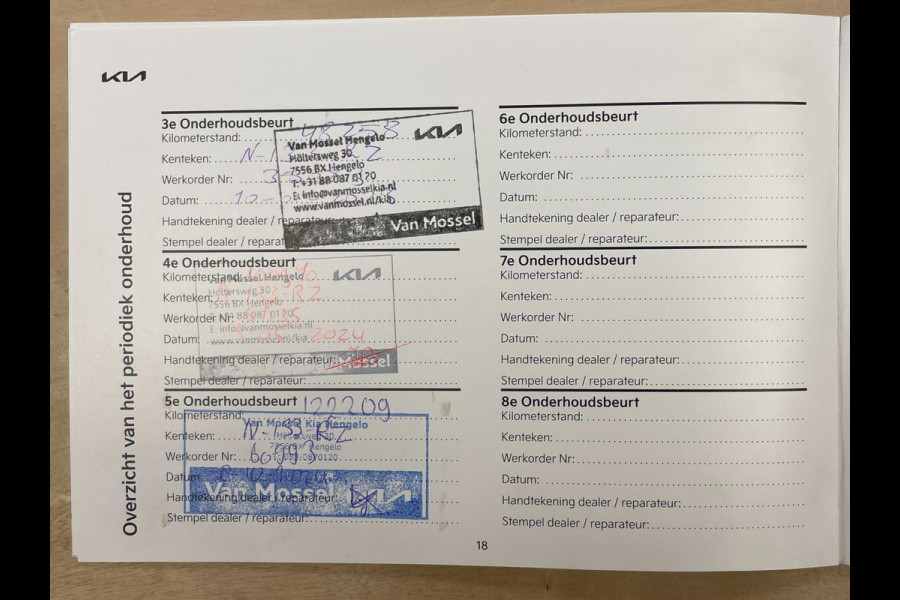 KIA
Overzicht van het periodiek onderhoud
3e Onderhoudsbeurt
Kilometerstand: 48258
Kenteken: N-
Werkorder Nr:
Datum:
Handtekening dealer / reparateur:
Stempel dealer / reparateur:
KIA
Van Mossel Hengelo
Höltersweg 30
7556 BX Hengelo
T: +31 88 087 01 20
E: info@vanmosselkia.nl
www.vanmossel.nl/kia
Van Mossel
4e Onderhoudsbeurt
Kilometerstand:
Kenteken: -RZ
Werkorder Nr:
Datum: 2024
Handtekening dealer / reparateur:
Stempel dealer / reparateur:
KIA
Van Mossel Hengelo
Höltersweg 30
7556 BX Hengelo
T: +31 88 087 01 20
E: info@vanmosselkia.nl
www.vanmossel.nl/kia
Mossel
5e Onderhoudsbeurt
Kilometerstand: 122209
Kenteken: N-133-RZ
Werkorder Nr: 60993
Datum:
Handtekening dealer / reparateur:
Stempel dealer / reparateur:
Van Mossel Kia Hengelo
7556 BX Hengelo
Van Mossel KIA
6e Onderhoudsbeurt
Kilometerstand:
Kenteken:
Werkorder Nr:
Datum:
Handtekening dealer / reparateur:
Stempel dealer / reparateur:
7e Onderhoudsbeurt
Kilometerstand:
Kenteken:
Werkorder Nr:
Datum:
Handtekening dealer / reparateur:
Stempel dealer / reparateur:
8e Onderhoudsbeurt
Kilometerstand:
Kenteken:
Werkorder Nr:
Datum:
Handtekening dealer / reparateur:
Stempel dealer / reparateur:
18